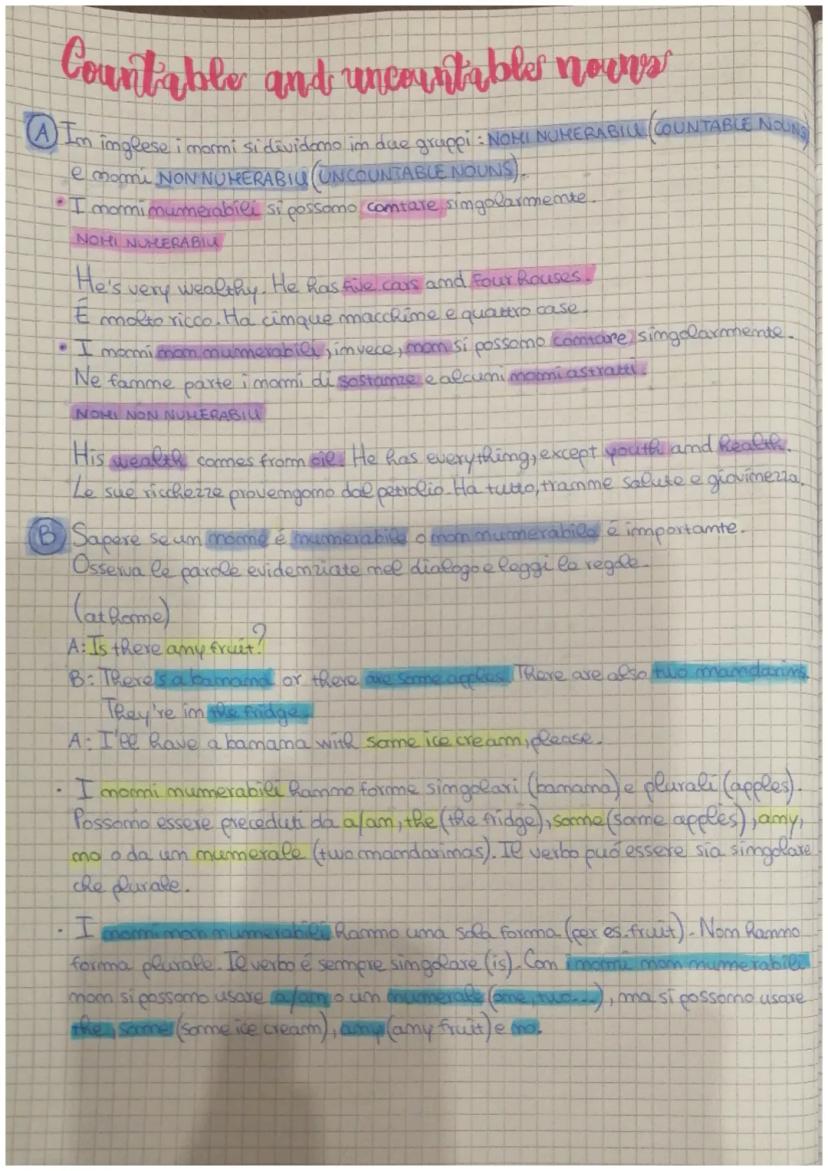 Countable and uncountables nouns
A In inglese i nomi si dividono in due gruppi: NOMI NUMERABILI (COUNTABLE NOUNS)
e nomi NON NUMERABILI (UNCOUNTABLE NOUNS).
• I nomi numerabili si possono contare singolarmente.
NOMI NUMERABILI
He's very wealthy. He has five cars and four houses.
É molto ricco. Ha cinque macchine e quattro case.
• I nomi non numerabili, invece, non si possono contare singolarmente.
Ne fanne parte i nomi di sostanze e alcuni nomi astratti.
NOMI NON NUMERABILI
His wealth comes from oil. He has everything, except youth and health.
Le sue ricchezze provengono dal petrolio. Ha tutto, tranne salute e giovinezza.
B Sapere se un nome é numerabile o non numerabile é importante.
Osserva le parole evidenziate nel dialogo e leggi le regole.
(at home)
A: Is there any fruit?
B: There's a banana or there are some apples. There are also two mandarins.
They're in the fridge.
A: I'll have a banana with some ice cream, please.
• I nomi numerabili hanno forme singolari (banana) e plurali (apples).
Possono essere preceduti da a/an, the (the fridge), some (some apples), any,
no o da un numerale (two mandarinas). Il verbo può essere sia singolare
che plurale.
• I nomi non numerabili hanno una sola forma (per es. fruit). Non hanno
forma plurale. Il verbo é sempre singolare (is). Con i nomi non numerabili
non si possono usare a/an o un numerale (one, two...), ma si possono usare
the, some (some ice cream), any (any fruit) e no.